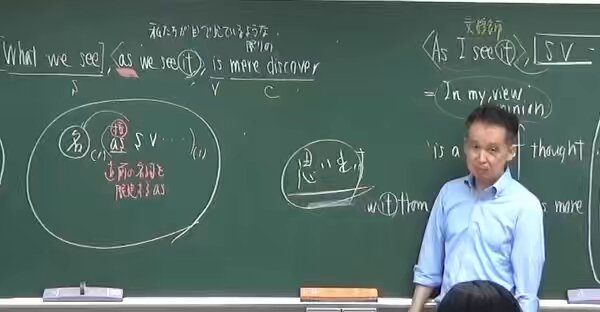 私たちが目で見ているような
限りの
What we see], <as we see it>, is mere discover
S
V
C
名 (,) 接 as S V ...) (,)
直前の名詞を
限定するas
<As I see it>, [S V
= In my view
opinion
is a
thought
it from
s more